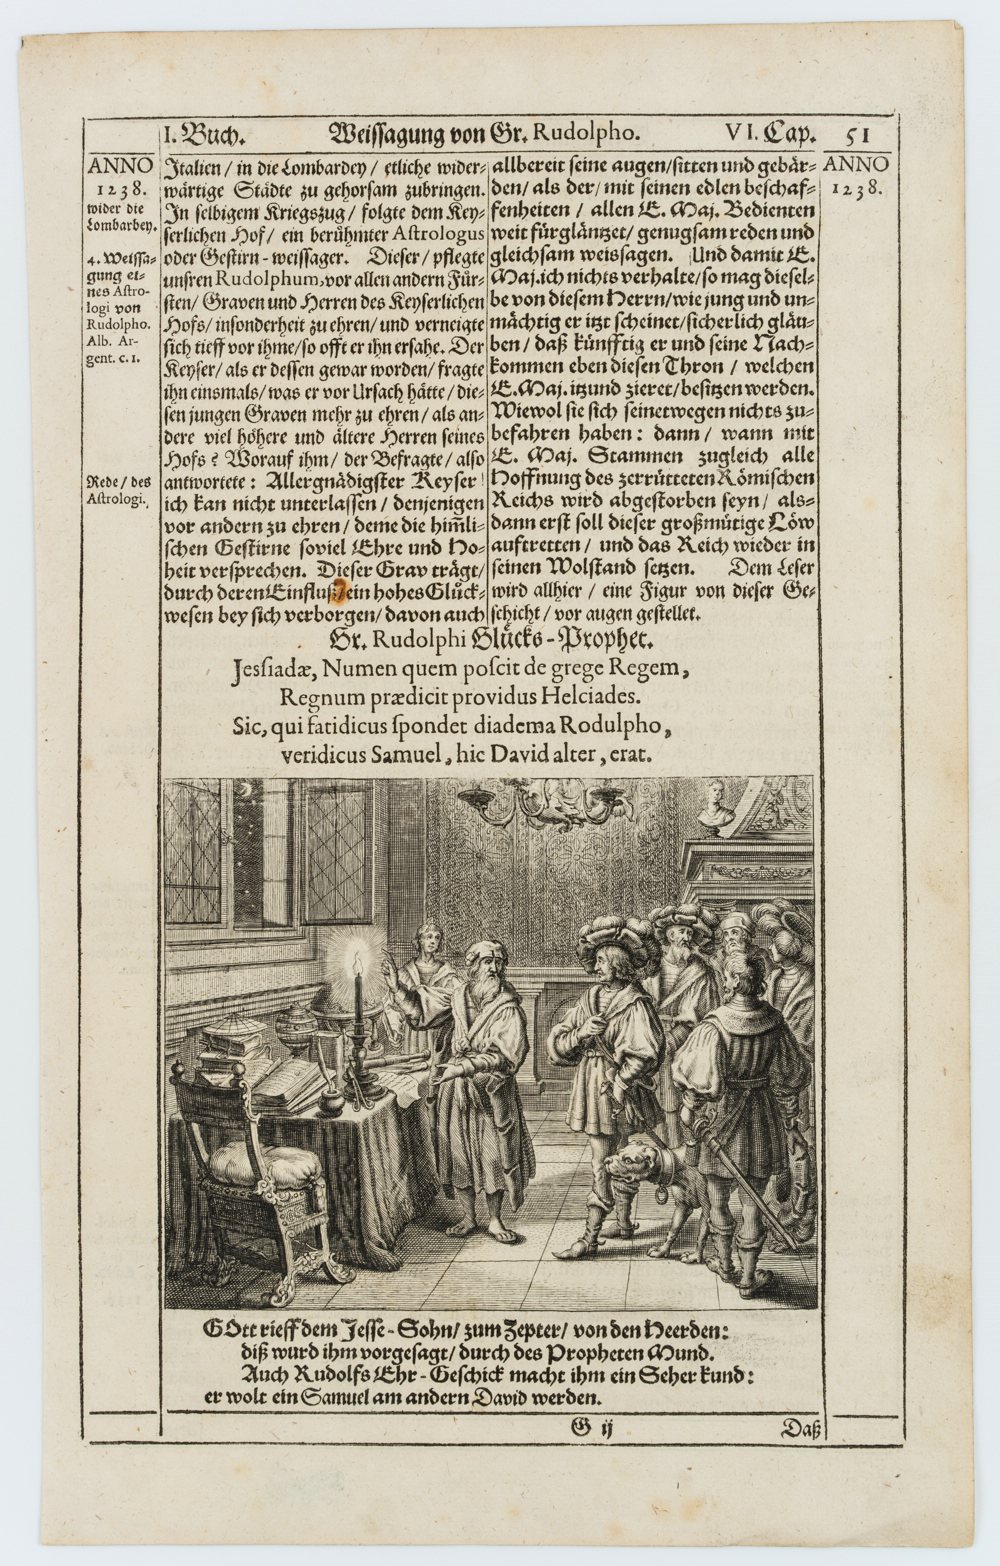 I. Buch. Weissagung von Gr. Rudolpho. VI. Cap. 51
ANNO
1238.
wider die
Lombardey.
4. Weissa-
gung ei-
nes Astro-
logi von
Rudolpho.
Alb. Ar-
gent. c. 1.
Rede/ des
Astrologi.
Italien/ in die Lombardey/ etliche wider-
wärtige Städte zu gehorsam zubringen.
In selbigem Kriegszug/ folgte dem Key-
serlichen Hof/ ein berühmter Astrologus
oder Gestirn-weissager. Dieser/ pflegte
unsren Rudolphum, vor allen andern Für-
sten/ Graven und Herren des Keyserlichen
Hofs/ insonderheit zu ehren/ und verneigte
sich tieff vor ihme/ so offt er ihn ersahe. Der
Keyser/ als er dessen gewar worden/ fragte
ihn einsmals/ was er vor Ursach hätte/ die-
sen jungen Graven mehr zu ehren/ als an-
dere viel höhere und ältere Herren seines
Hofs? Worauf ihm/ der Befragte/ also
antwortete: Allergnädigster Keyser!
ich kan nicht unterlassen/ denjenigen
vor andern zu ehren/ deme die him̃li-
schen Gestirne soviel Ehre und Ho-
heit versprechen. Dieser Grav trägt/
durch deren Einfluß/ ein hohes Glück-
wesen bey sich verborgen/ davon auch
allbereit seine augen/ sitten und gebär-
den/ als der/ mit seinen edlen beschaf-
fenheiten/ allen E. Maj. Bedienten
weit fürgläntzet/ genugsam reden und
gleichsam weissagen. Und damit E.
Maj. ich nichts verhalte/ so mag diesel-
be von diesem Herrn/ wie jung und un-
mächtig er itzt scheinet/ sicherlich gläu-
ben/ daß künfftig er und seine Nach-
kommen eben diesen Thron/ welchen
E. Maj. itzund zieret/ besitzen werden.
Wiewol sie sich seinetwegen nichts zu-
befahren haben: dann/ wann mit
E. Maj. Stammen zugleich alle
Hoffnung des zerrütteten Römischen
Reichs wird abgestorben seyn/ als-
dann erst soll dieser großmütige Löw
auftretten/ und das Reich wieder in
seinen Wolstand setzen. Dem Leser
wird allhier/ eine Figur von dieser Ge-
schicht/ vor augen gestellet.
ANNO
1238.
Gr. Rudolphi Glücks-Prophet.
Jessiadæ, Numen quem poscit de grege Regem,
Regnum prædicit providus Helciades.
Sic, qui fatidicus spondet diadema Rodulpho,
veridicus Samuel, hic David alter, erat.
GOtt rieff dem Jesse-Sohn/ zum Zepter/ von den Heerden:
diß wurd ihm vorgesagt/ durch des Propheten Mund.
Auch Rudolfs Ehr-Geschick macht ihm ein Seher kund:
er wolt ein Samuel am andern David werden.
G ij Daß